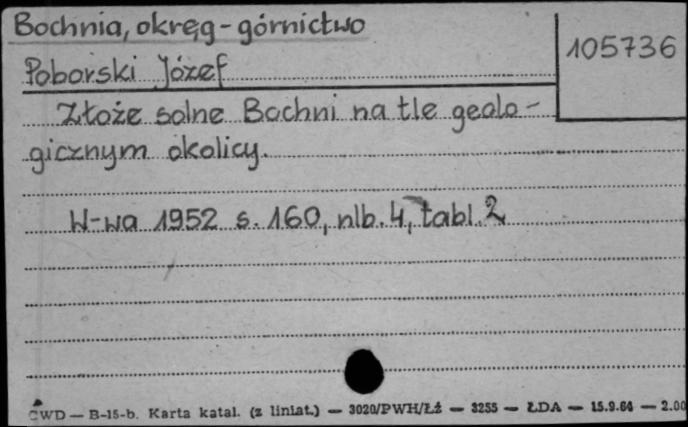 Bochnia, okręg - górnictwo
105736
Poborski Józef
Złoże solne Bochni na tle geolo-
gicznym okolicy.
W-wa 1952 s. 160, nlb. 4, tabl. 2
CWD — B-15-b. Karta katal. (z liniat.) — 3020/PWH/Łź — 3255 — ŁDA — 15.9.64 — 2.00